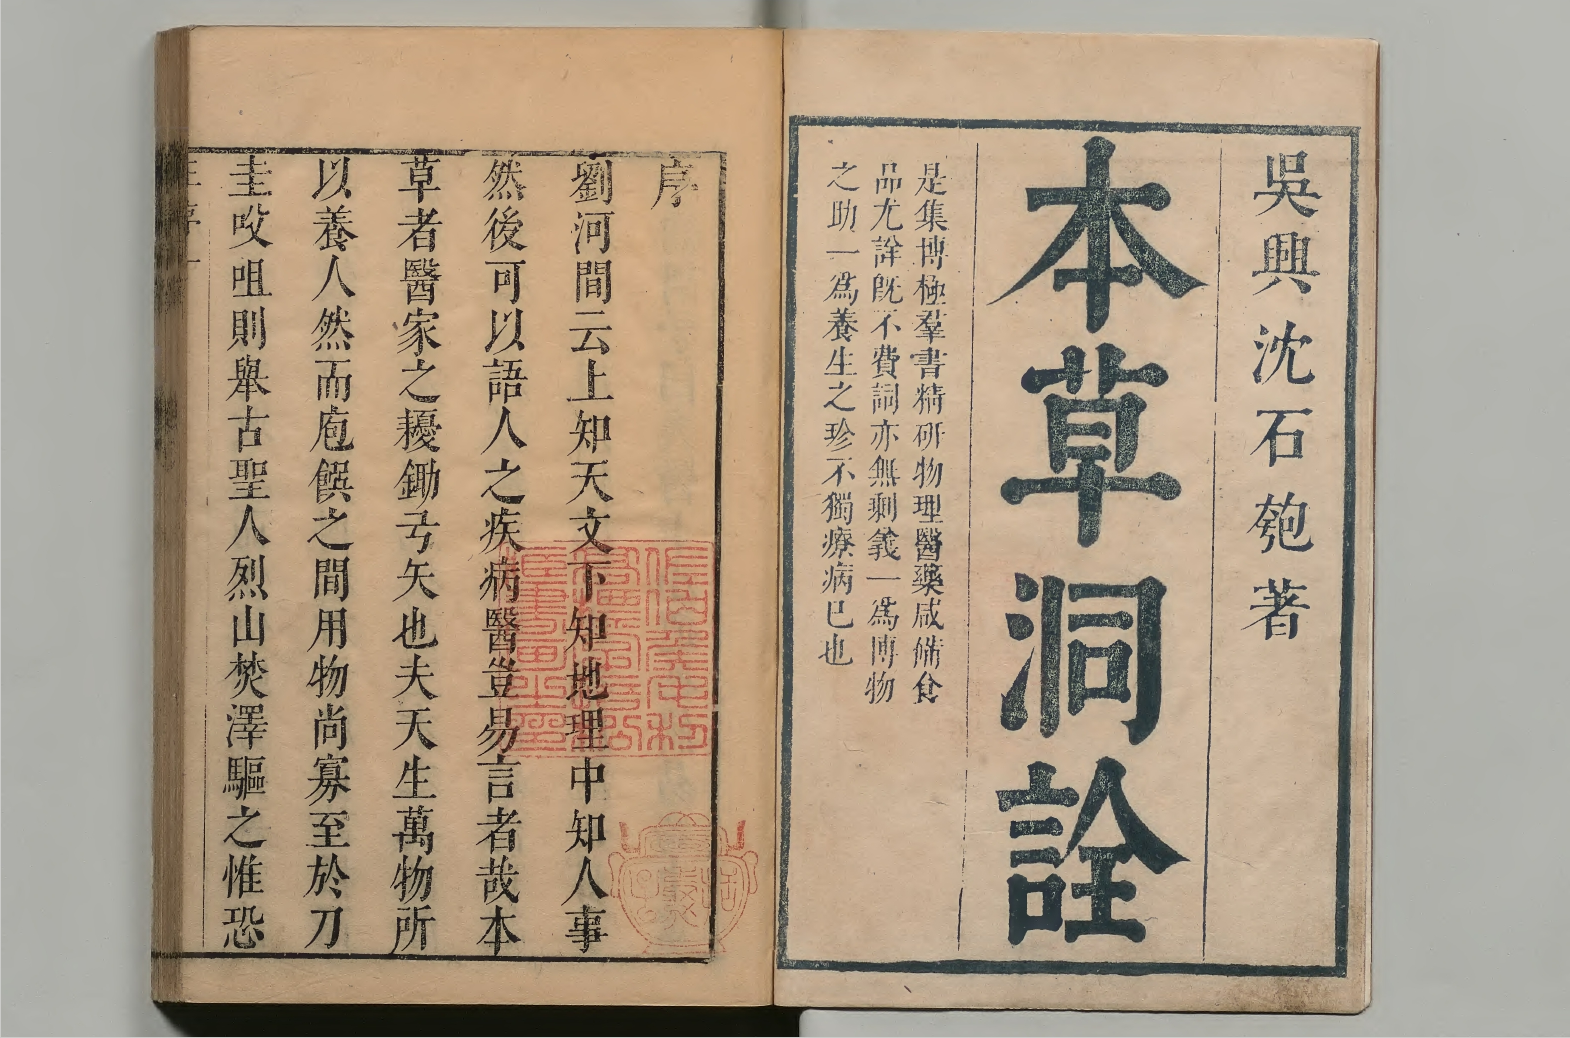 吳興沈石匏著
本草洞詮
是集博極羣書精研物理醫藥咸備食
品尤詮旣不費詞亦無剩義一爲博物
之助一爲養生之珍不獨療病已也
序
劉河間云上知天文下知地理中知人事
然後可以語人之疾病醫豈易言者哉本
草者醫家之耰鋤弓矢也夫天生萬物所
以養人然而庖饌之間用物尚寡至於刀
圭㕮咀則舉古聖人烈山焚澤驅之惟恐